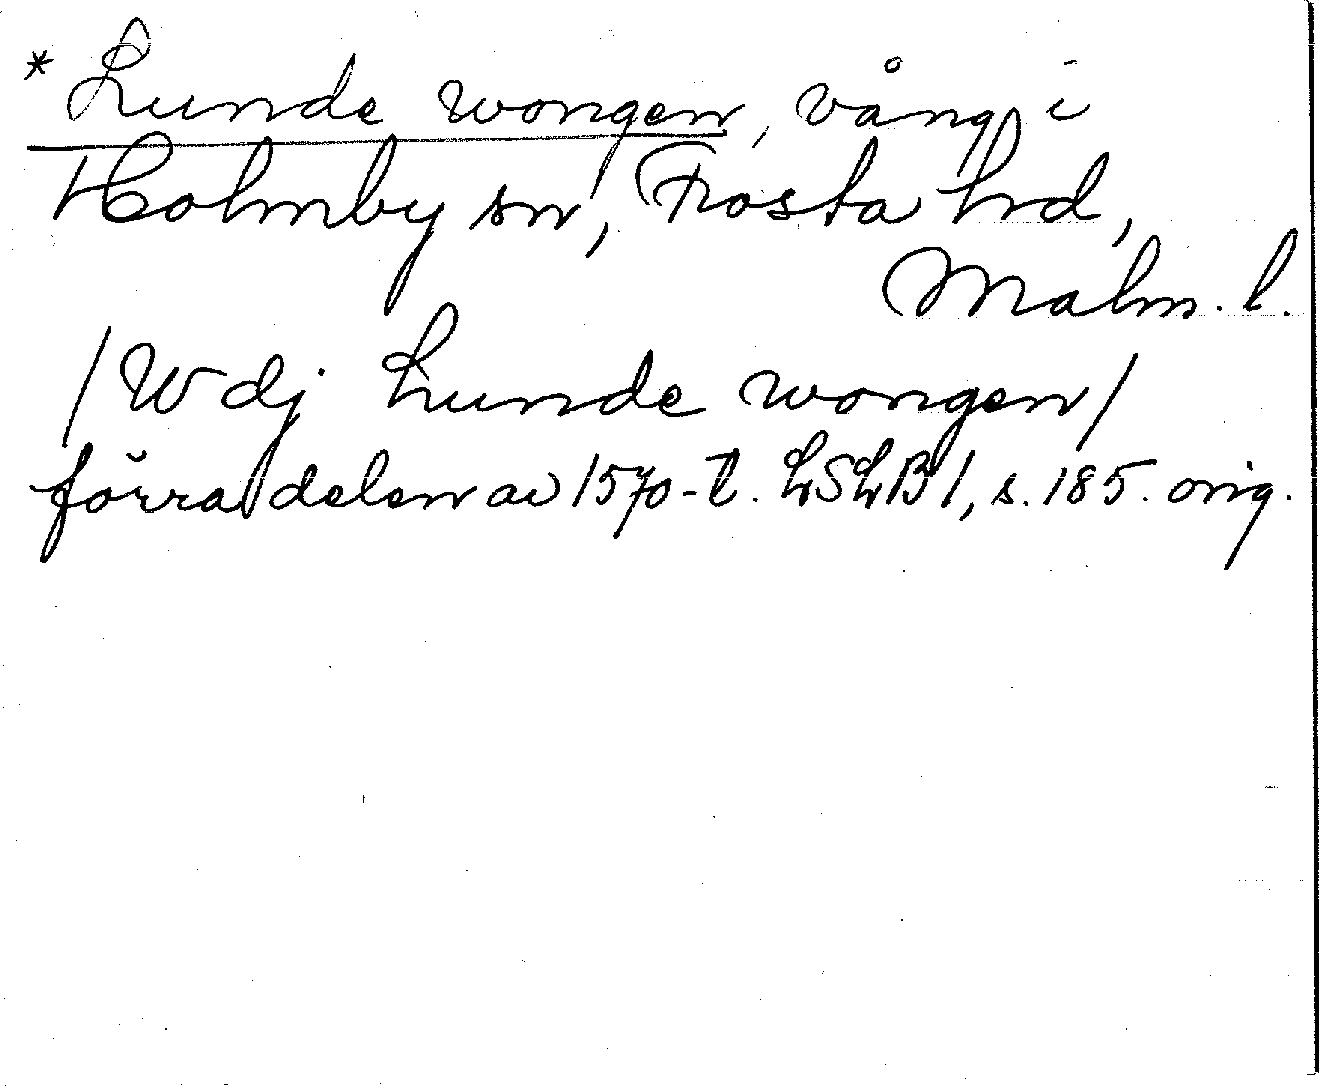 * Lunde wongen, vång i
Holmby sn, Frosta hd,
Malm. l.
/W dj Lunde wongen/
förra delen av 1570-t. LSLB 1, s. 185. orig.